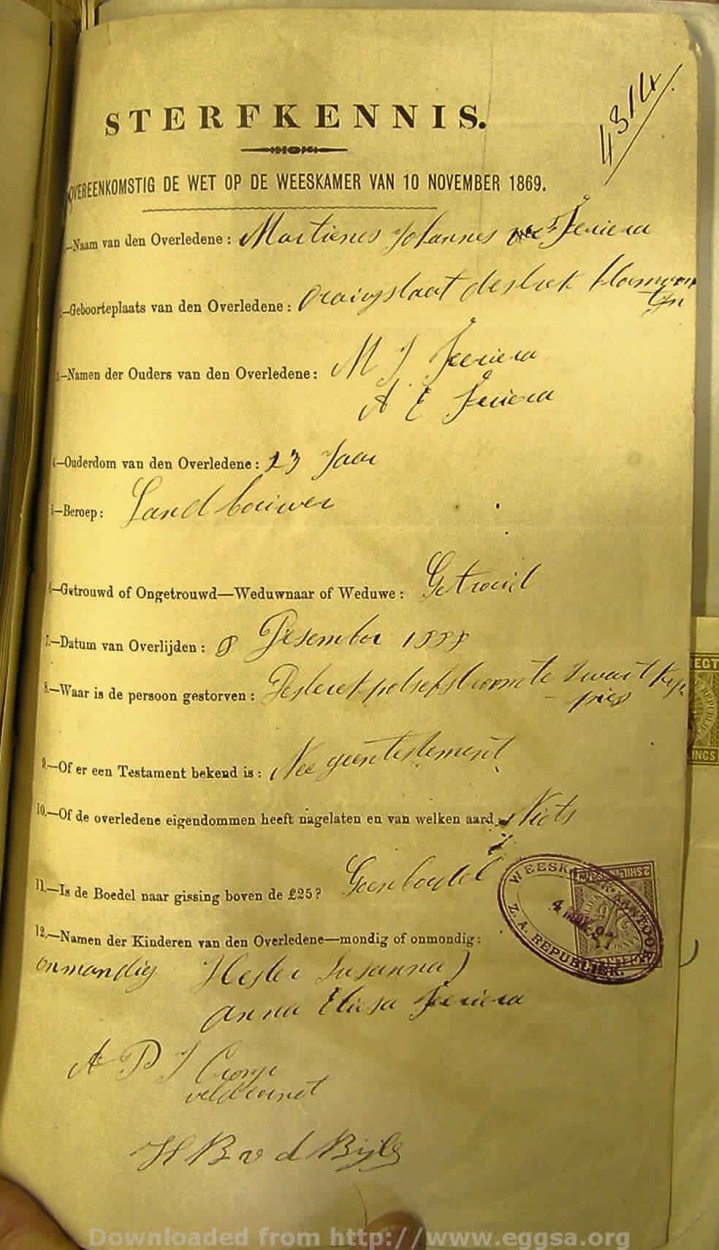 4314
STERFKENNIS.
OVEREENKOMSTIG DE WET OP DE WEESKAMER VAN 10 NOVEMBER 1869.
—Naam van den Overledene: Martienes Johannes Fereiera
—Geboorteplaats van den Overledene:
—Namen der Ouders van den Overledene: M J Fereiera
A E Fereiera
—Ouderdom van den Overledene: 23 Jaar
—Beroep: Landbouwer
—Getrouwd of Ongetrouwd—Weduwnaar of Weduwe: Getroud
7.—Datum van Overlijden: 8 Desember 1888
8.—Waar is de persoon gestorven: Zwart Kop
pies
9.—Of er een Testament bekend is: Nee geen testement
10.—Of de overledene eigendommen heeft nagelaten en van welken aard: Niets
11.—Is de Boedel naar gissing boven de £25? Geen boedel
WEESKAMER KANTOOR
Z. A. REPUBLIEK.
12.—Namen der Kinderen van den Overledene—mondig of onmondig:
onmondig Hester Susanna
Anna Elisa Fereiera
A P J Cronje
veldcornet
H B v d Bijl
EGT
INGS
Downloaded from http://www.eggsa.org